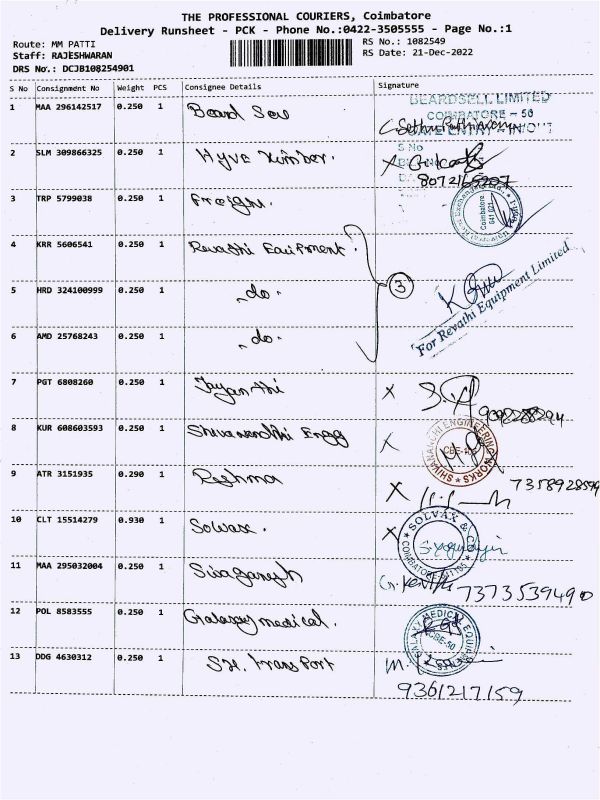 THE PROFESSIONAL COURIERS, Coimbatore
Delivery Runsheet - PCK - Phone No.:0422-3505555 - Page No.:1
Route: MM PATTI
Staff: RAJESHWARAN
DRS No.: DCJB108254901
RS No.: 1082549
RS Date: 21-Dec-2022
S No Consignment No Weight PCS Consignee Details Signature
1 MAA 296142517 0.250 1 Beard Sell
BEARDSELL LIMITED
COIMBATORE - 50
2 SLM 309866325 0.250 1 Hyva
S No
8072165207
3 TRP 5799038 0.250 1
Coimbatore
641 021
4 KRR 5606541 0.250 1 Revathi Equipment.
5 HRD 324100999 0.250 1 -do-
3
6 AMD 25768243 0.250 1 -do-
For Revathi Equipment Limited
7 PGT 6808260 0.250 1 Jayanthi X
8 KUR 608603593 0.250 1 Shivanandhi Engg X
SHIVANANDHI ENGINEERING WORKS
9 ATR 3151935 0.290 1 Reshma X
7358928599
10 CLT 15514279 0.930 1 Solvax. X
SOLVAX &
COIMBATORE
11 MAA 295032004 0.250 1 Sivaganesh
7373539490
12 POL 8583555 0.250 1 Galaxy medical.
GALAXY MEDICAL EQUIPMENTS
CBE-50
13 DDG 4630312 0.250 1 S.K. Transport
9361217159